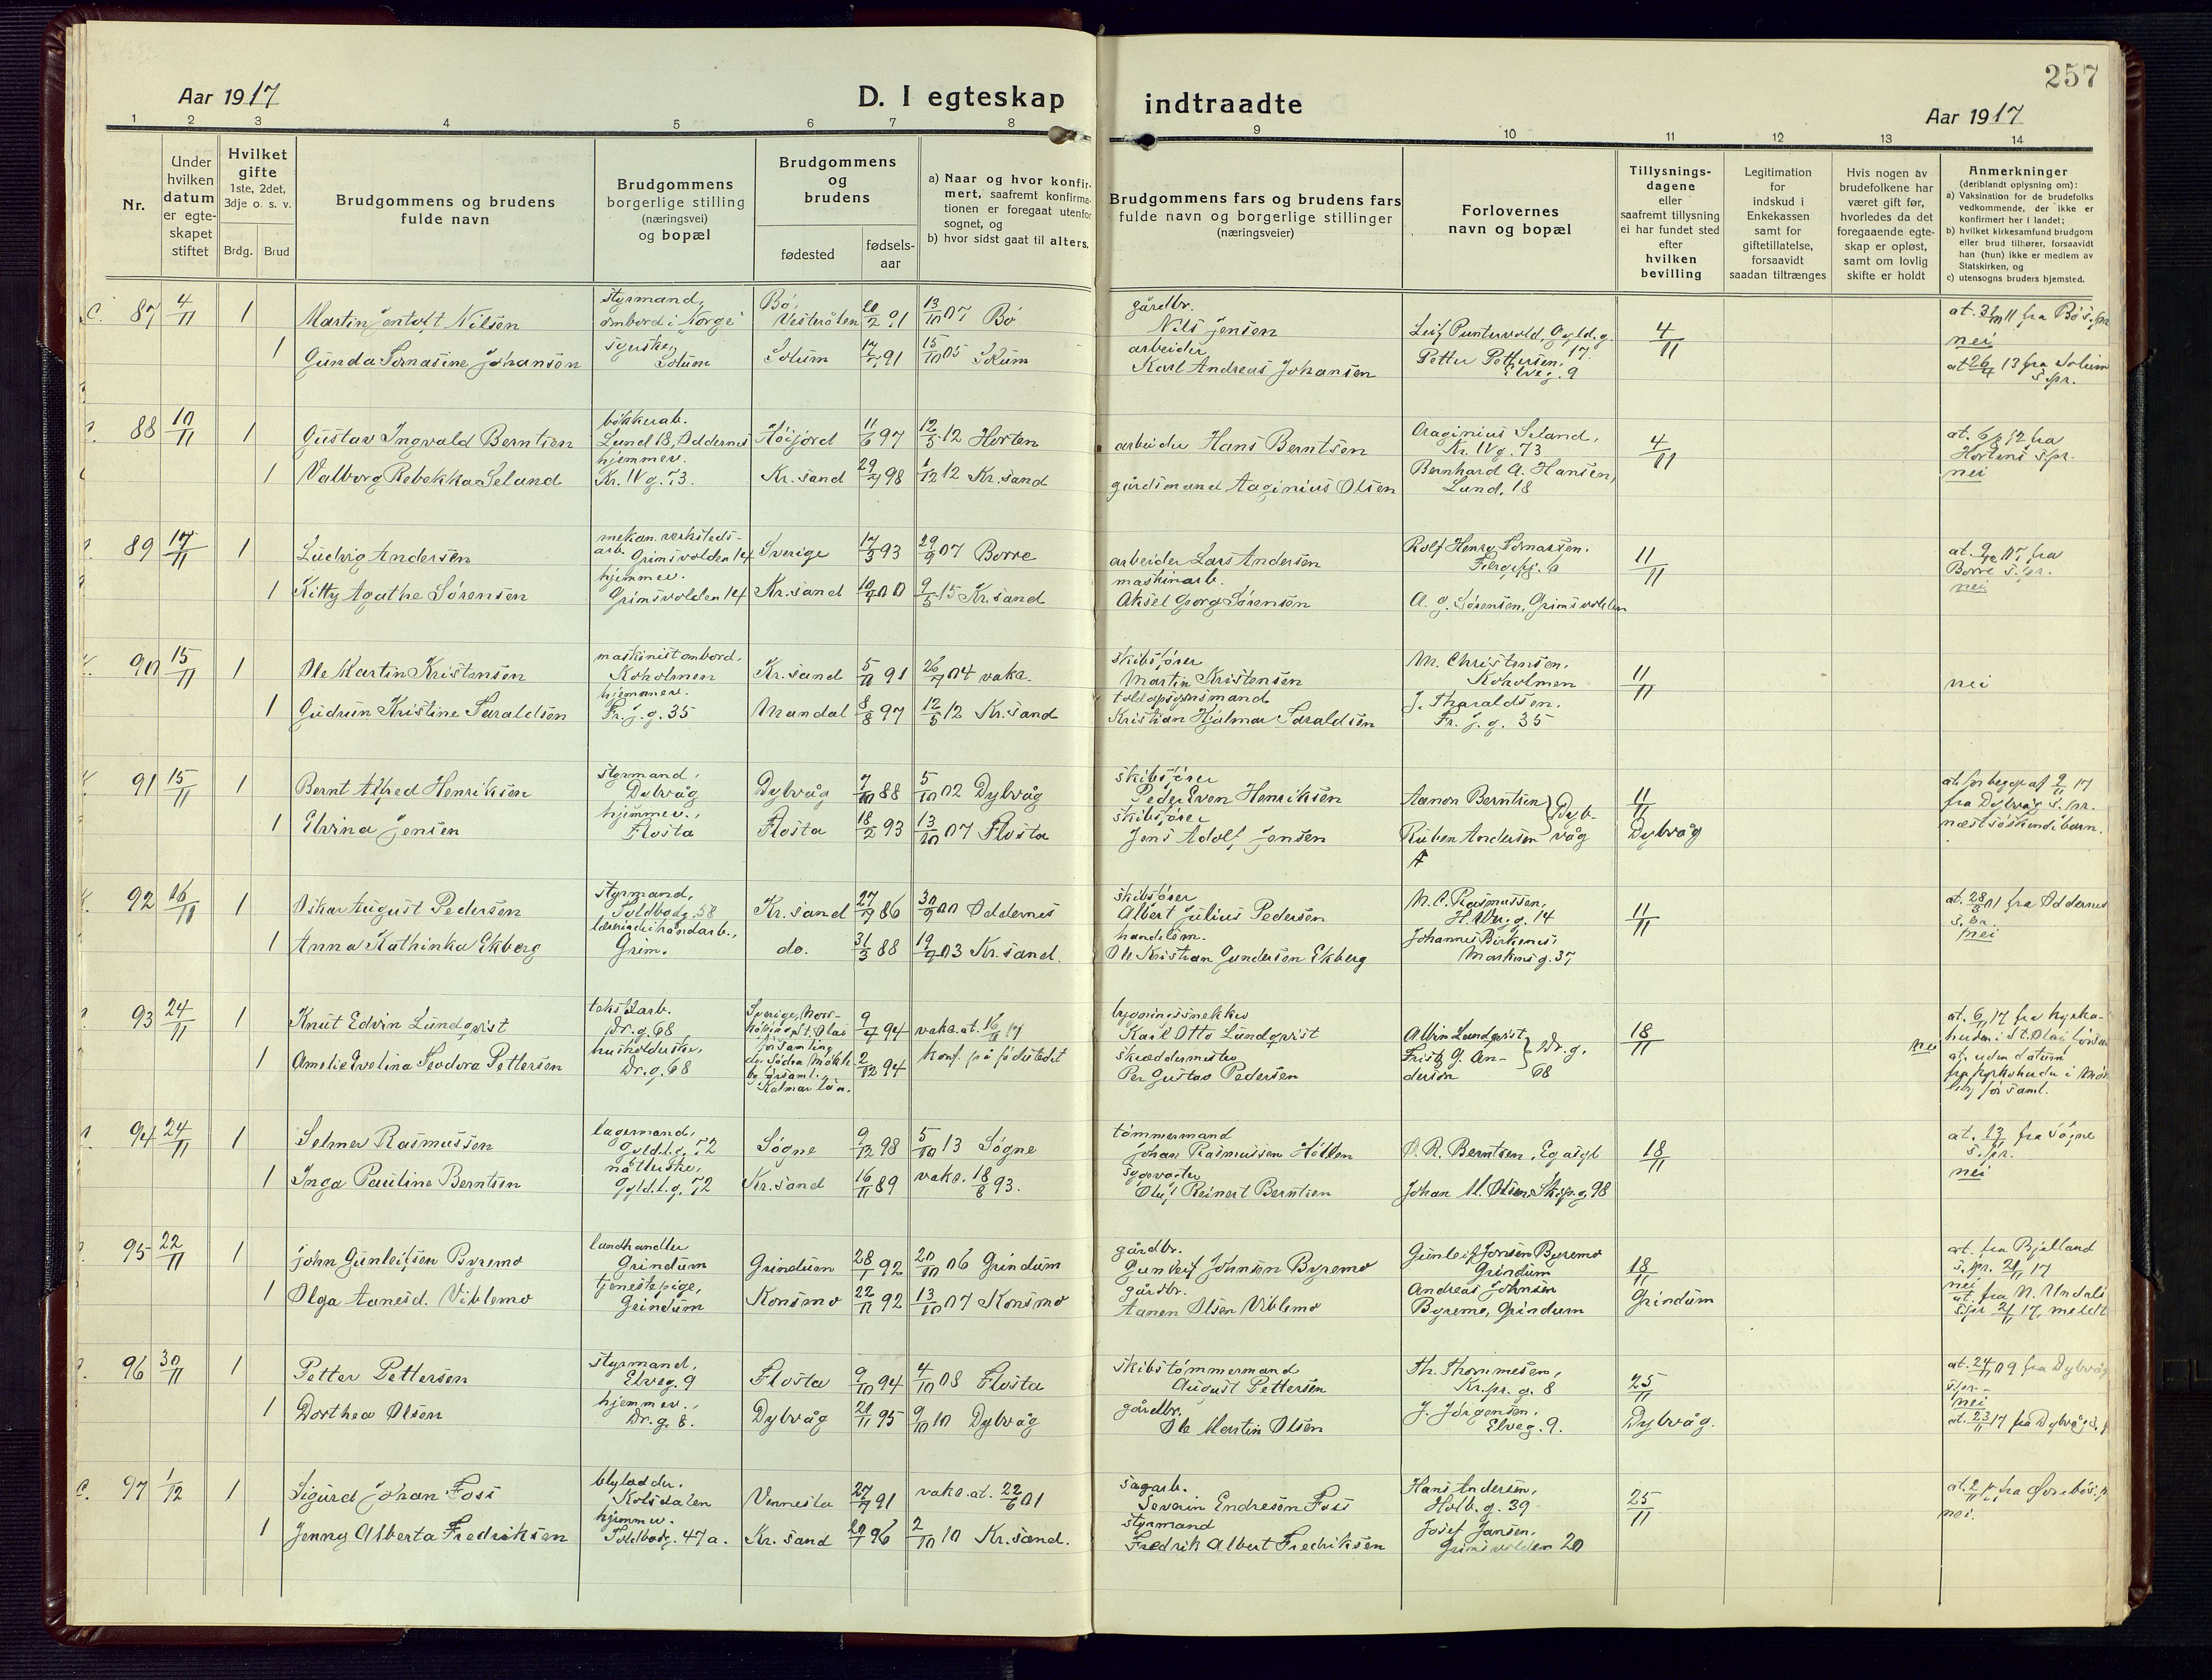 257
Aar 1917
D. I egteskap
indtraadte
Aar 1917
1 2 3 4 5 6 7 8 9 10 11 12 13 14
Nr.
Under hvilken datum er egteskapet stiftet
Hvilket gifte 1ste, 2det, 3dje o. s. v.
Brdg. Brud
Brudgommens og brudens fulde navn
Brudgommens borgerlige stilling (næringsvei) og bopæl
Brudgommens og brudens
fødested
fødsels-aar
a) Naar og hvor konfirmert, saafremt konfirmationen er foregaat utenfor sognet, og
b) hvor sidst gaat til alters.
Brudgommens fars og brudens fars fulde navn og borgerlige stillinger (næringsveier)
Forlovernes navn og bopæl
Tillysningsdagene eller saafremt tillysning ei har fundet sted efter hvilken bevilling
Legitimation for indskud i Enkekassen samt for giftetillatelse, forsaavidt saadan tiltrænges
Hvis nogen av brudefolkene har været gift før, hvorledes da det foregaaende egteskap er opløst, samt om lovlig skifte er holdt
Anmerkninger (deriblandt oplysning om):
a) Vaksination for de brudefolks vedkommende, der ikke er konfirmert her i landet;
b) hvilket kirkesamfund brudgom eller brud tilhører, forsaavidt han (hun) ikke er medlem av Statskirken, og
c) utensogns bruders hjemsted.
87 4/11 1 Martin Jentoft Nilsen styrmand, ombord i "Norge" Bø, Vesterålen 20/2 91 13/10 07 Bø gårdbr. Nils Jensen Leif Puntervold, Gyld. g. 17. 4/11 fra Bø s.pr.
1 Gunda Tomasine Johanson syerske, Solum Solum 91 15/10 05 Solum arbeider Karl Andreas Johansen Petter Pettersen, Elveg. 9 nei at. 26/7 13 fra Solum s.pr.
88 10/11 1 Gustav Ingvald Berntsen bøkkerab. Lund 18, Oddernes Høijord 11/6 97 12/5 12 Horten arbeider Hans Berntsen Aaginius Seland, Kr. IV g. 73 4/11 at. 6/8 12 fra Hortens s.pr.
1 Valborg Rebekka Seland hjemmev. Kr. IV g. 73. Kr.sand 98 1/12 12 Kr.sand gårdsmand Aaginius Olsen Bernhard A. Hansen, Lund. 18 nei
89 17/11 1 Ludvig Andersen mekan. verksteds-arb. Grimsvolden 14 Sverige 17/3 93 29/9 07 Borre arbeider Lars Andersen Rolf Henry Tomassen. 11/11 fra Borre s.pr.
1 Kitty Agathe Sørensen hjemmev. Grimsvolden 14 Kr.sand 10/7 00 9/5 15 Kr.sand maskinarb. Aksel Georg Sørensen A. G. Sørensen, Grimsvolden nei
90 15/11 1 Ole Martin Kristensen maskinist ombord. Koholmen Kr.sand 5/11 91 26/7 04 vaks. skibsfører Martin Kristensen M. Christensen. Koholmen 11/11 nei
1 Gudrun Kristine Taraldsen hjemmev. Fr. j. g. 35 Mandal 8/8 97 12/5 12 Kr.sand toldopsynsmand Kristian Hjalmar Taraldsen J. Tharaldsen. Fr. j. g. 35
91 15/11 1 Bernt Alfred Henriksen styrmand, Dybvåg Dybvåg 7/10 88 5/10 02 Dybvåg skibsfører Peder Even Henriksen Aanon Berntsen 11/11 at. for begge af 9/11 17 fra Dybvåg s.pr.
1 Elvina Jensen hjemmev., Flosta Flosta 18/2 93 13/10 07 Flosta skibsfører Jens Adolf Jensen Ruben Andersen } Dybvåg Dybvåg næstsøskendebarn.
92 16/11 1 Oskar August Pedersen styrmand, Toldbodg. 58 Kr.sand 27/9 86 30/9 00 Oddernes skibsfører Albert Julius Pedersen M. C. Rasmussen, H. Wer. g. 14 11/11 at. 28/5 01 fra Oddernes s.pr.
1 Anna Kathinka Ekberg lærerinde i håndarb., Grim. do. 31/3 88 19/4 03 Kr.sand. handelsm. Ole Kristian Gundersen Ekberg Johannes Birkenes, Markens g. 37 nei
93 24/11 1 Knut Edvin Lundqvist tekstilarb. Dr. g. 68 Sverige, Norrköping, St. Olai församling 9/7 94 vaks. at. 16/11 17 bygningssnekker Karl Otto Lundqvist Albin Lundqvist 18/11 nei at. 6/11 17 fra kyrkoherden i St. Olai försam
1 Amelie Evelina Teodora Pettersen husholderske, Dr. g. 68 do. Södra Möckleby församl. Kalmar län. 2/12 94 konf. på fødestedet skræddermester Per Gustav Pedersen Fritz G. Anderson } Dr. g. 68 at. uden datum fra kyrkoherden i Möckleby församl.
94 24/11 1 Selmer Rasmussen lagermand, Gyld.l.g. 72 Søgne 9/12 98 5/10 13 Søgne tømmermand Johan Rasmussen Holten O. R. Berntsen, Eg asyl 18/11 fra Søgne s.pr.
1 Inga Pauline Berntsen Gyld.l.g. 72 Kr.sand 16/11 89 vaks. 18/8 93. sygevogter Oluf Reinert Berntsen Johan M. Olsen, Skipp.g. 98 nei
95 22/11 1 John Gunleifsen Byremo landhandler Grindum Grindum 28/1 92 20/10 06 Grindum gårdbr. Gunleif Johnsen Byremo Gunleif Jonsen Byremo Grindum 18/11 at. fra Bjelland s.pr. 21/11 17
1 Olga Aanesd. Viblemo tjenestepige, Grindum Konsmo 22/11 92 13/10 07 Konsmo gårdbr. Aanen Olsen Viblemo Andreas Johnsen Byremo, Grindum Grindum nei at. fra N. Undals s.pr 21/11 17, meldt
96 30/11 1 Petter Pettersen styrmand, Elveg. 9 Flosta 9/10 94 4/10 08 Flosta skibstømmermand August Pettersen Th. Thommesen, Kr. pr. g. 8 25/11 fra Dybvåg s.pr.
1 Dorthea Olsen hjemmev., Dr. g. 8. Dybvåg 21/11 95 9/10 10 Dybvåg gårdbr. Ole Martin Olsen J. Jørgensen, Elveg. 9. Dybvåg. nei at. 23/11 17 fra Dybvåg s.p
97 1/12 1 Sigurd Johan Foss Kolsdalen Vennesla 27/9 91 vaks. at. 22/6 01 sagarb. Severin Endresen Foss Hans Andersen, Holb. g. 39 25/11
1 Jenny Alberta Fredriksen hjemmev. Toldbodg. 47 a. Kr.sand 20/7 96 2/10 10 Kr.sand. styrmand Fredrik Albert Fredriksen Josef Jansen, Grimsvolden 20 nei.